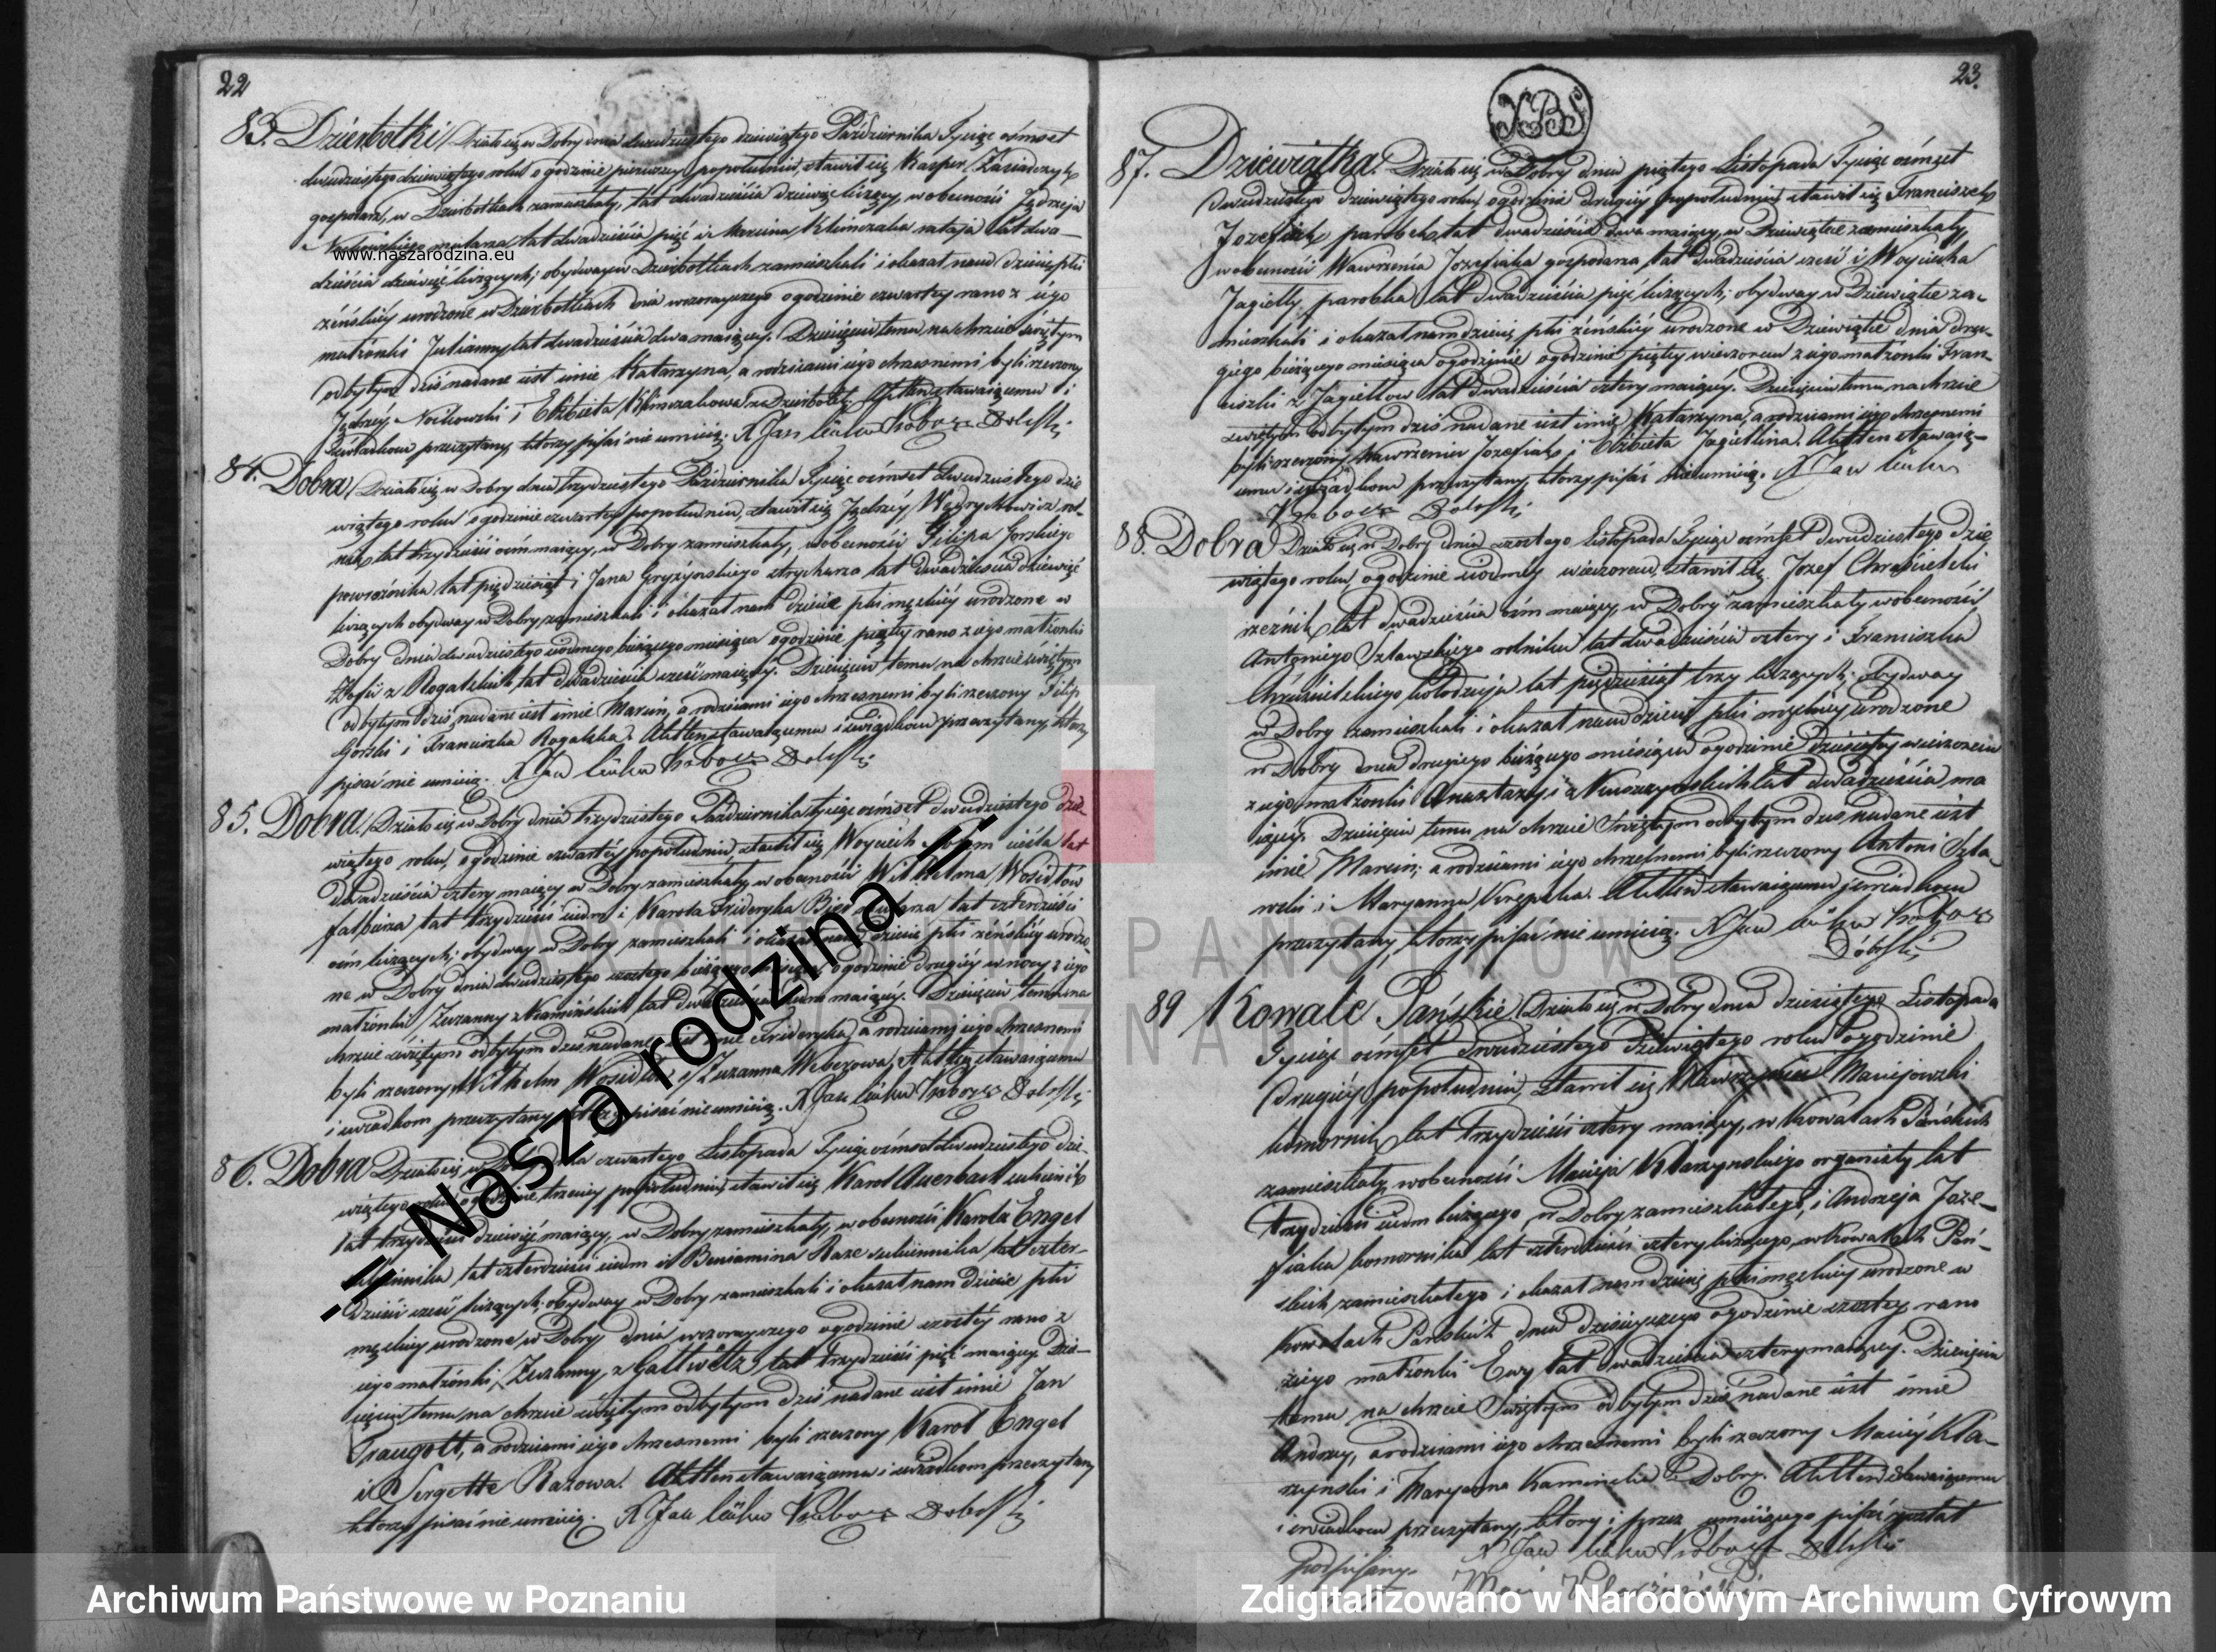 22
83. Dzierbotki Działo się w Dobry dnia dwudziestego dziewiątego Października Tysiąc osmset
dwudziestego dziewiątego roku o godzinie pierwszey popołudniu, stawił się Kasper
gospodarz, w Dzierbotkach zamieszkały, lat dwadzieścia dziewięć liczący, w obecności Jędrzeja
mularza, lat dwadzieścia pięć i Marcina Klimczaka rataja lat dwa-
www.naszarodzina.eu
dzieścia dziewięć liczących; obydwaj w Dzierbotkach zamieszkali i okazał nam dziecię płci
żeńskiéy urodzone w Dzierbotkach dnia wczorayszego o godzinie czwartey rano z iégo
małżonki Julianny lat dwadzieścia dwa maiącey. Dziecięciu temu na chrzcie świętym
odbytym dziś nadane iest imie Katarzyna, a rodzicami iego chrzesnemi byli rzeczony
Jędrzéy i Elżbieta Klimczakowa z Dzierbotek. Akt ten stawaiącemu i
świadkom przeczytany, którzy pisać nie umieią. X Jan
84. Dobra Działo się w Dobry dnia trzydziestego Października Tysiąc ośmset dwudziestego dzie
wiątego roku o godzinie czwartey popołudniu, stawił się Jędrzéy Wędrychowicz rol-
nik lat trzydzieści ośm maiący, w Dobry zamieszkały, w obecności Filipa Gorskiego
powroźnika lat pięćdziesiąt i Jana Gryżyńskiego strycharza lat dwadzieścia dziewięć
liczących obydway w Dobry zamieszkali i okazał nam dziecie płci męskiéy urodzone w
Dobry dnia dwudziestego siódmego bieżącego miesiąca o godzinie piątey rano z iego małżonki
Zofii z Rogalskich lat dwadzieścia sześć maiącey. Dziecięciu temu na chrzcie świętym
odbytym dziś, nadane iest imie Marcin, a rodzicami iego chrzesnemi byli rzeczony Filip
Gorski i Franciszka Rogalska. Akt ten stawaiącemu i świadkom przeczytany, którzy
pisać nie umieią. X Jan
85. Dobra. Działo się w Dobry dnia trzydziestego Października tysiąc ośmset dwudziestego dzie-
wiątego roku, o godzinie czwartéy popołudniu stawił się Woyciech cieśla lat
dwadzieścia cztery maiący w Dobry zamieszkały, w obecności Wilhelma
lat trzydzieści siedm i Karola Frideryka lat czterdzieści
ośm liczących; obydway w Dobry zamieszkali i okazał nam dziecie płci żeńskiéy urodzo-
ne w Dobry dnia dwudziestego szostego bieżącego miesiąca o godzinie drugiéy w nocy z iego
małżonki Zuzanny lat dwadzieścia maiącéy. Dziecięciu temu na
chrzcie świętym odbytym dziś nadane iest imie Friderika, a rodzicami iego chrzesnemi
byli rzeczony Wilhelm i Zuzanna Weberowa, Akt ten stawaiącemu
i świadkom przeczytany którzy pisać nie umieią. X Jan
86. Dobra Działo się w Dobry dnia czwartego Listopada Tysiąc ośmset dwudziestego dzie-
wiątego roku o godzinie trzeciey popołudniu stawił się Karol Auerbach sukiennik
lat trzydzieści dziewięć maiący, w Dobry zamieszkały, w obecności Karola Engel
sukiennika lat czterdzieści siedm i Beniamina Raze sukiennika lat czter-
dzieści sześć liczących; obydway w Dobry zamieszkali i okazał nam dziecie płci
męskiey urodzone w Dobry dnia wczorayszego o godzinie szostey rano z
iego małżonki Zuzanny z lat trzydzieści pięć maiącey. Dzie-
cięciu temu na chrzcie świętym odbytym dziś nadane iest imie Jan
Traugott, a rodzicami iego chrzesnemi byli rzeczony Karol Engel
i Razowa. Akt ten stawaiącemu i świadkom przeczytany
którzy pisać nie umieią. X Jan
23.
87. Dziewiątka. Działo się w Dobry dnia piątego Listopada Tysiąc ośmset
dwudziestego dziewiątego roku, o godzinie drugiéy popołudniu stawił się Franciszek
Jozefiak parobek lat dwadzieścia dwa maiący, w Dziewiątce zamieszkały,
w obecności Wawrzeńca Jozefiaka gospodarza lat dwadzieścia sześć i Woyciecha
Jagiełły parobka lat dwadzieścia pięć liczących; obydway w Dziewiątce za-
mieszkali i okazał nam dziecię płci żeńskiéy urodzone w Dziewiątce dnia dru-
giego bieżącego miesiąca o godzinie piątey wieczorem z iego małżonki Fran-
ciszki z Jagiełłow lat dwadzieścia cztery maiącey. Dziecięciu temu na chrzcie
świętym odbytym dziś nadane iest imie Katarzyna, a rodzicami iego chrzesnemi
byli rzeczony Wawrzeniec Jozefiak i Elżbieta Jagiellina. Akt ten stawaią-
cemu i świadkom przeczytany, którzy pisać nie umieią. X Jan
88. Dobra Działo się w Dobry dnia szostego Listopada Tysiąc ośmset dwudziestego dzie
wiątego roku, o godzinie siodmey wieczorem, stawił się Jozef Chruścielski
rzeźnik lat dwadzieścia ośm maiący, w Dobry zamieszkały w obecności
Antoniego Szławskiego rolnika lat dwadzieścia cztery i Franciszka
Chruścielskiego kołodzieja lat pięćdziesiąt trzy liczących, obydway
w Dobry zamieszkali i okazał nam dziecie płci męskiey urodzone
w Dobry dnia drugiego bieżącego miesiąca o godzinie dziesiątey wieczorem
z iego małżonki Anastazyi z lat dwadzieścia ma
iącey. Dziecięciu temu na chrzcie świętym odbytym dziś nadane iest
imie Marcin; a rodzicami iego chrzesnemi byli rzeczony Antoni Szła-
wski i Maryanna. Akt ten stawaiącemu i świadkom
przeczytany, którzy pisać nie umieią. X Jan
89 Kowale Pańskie Działo się w Dobry dnia dziesiątego Listopada
Tysiąc ośmset dwudziestego dziewiątego roku o godzinie
drugiéy popołudniu, stawił się Wawrzyniec Maciejowski
komornik lat trzydzieści cztery maiący, w Kowalach Pańskich
zamieszkały, w obecności Macieja Klarzynskiego organisty lat
trzydzieści siedm liczącego, w Dobry zamieszkałego, i Andrzeja Joze-
fiaka komornika lat czterdzieści cztery liczącego, w Kowalach Pań-
skich zamieszkałego i okazał nam dziecię płci męskiey urodzone w
Kowalach Pańskich dnia dzisieyszego o godzinie szostey rano
z iego małżonki Ewy lat dwadzieścia cztery maiącéy. Dziecięciu
temu na chrzcie świętym odbytym dziś nadane iest imie
Andrzey, a rodzicami iego chrzesnemi byli rzeczony Maciéy Kla-
rzynski i Maryanna Kaminska z Dobry. Akt ten stawaiącemu
i świadkom przeczytany, który i przez umieiącego pisać został
podpisany. X Jan
-= Nasza rodzina =-
ARCHIWUM PAŃSTWOWE
W POZNANIU
Archiwum Państwowe w Poznaniu
Zdigitalizowano w Narodowym Archiwum Cyfrowym